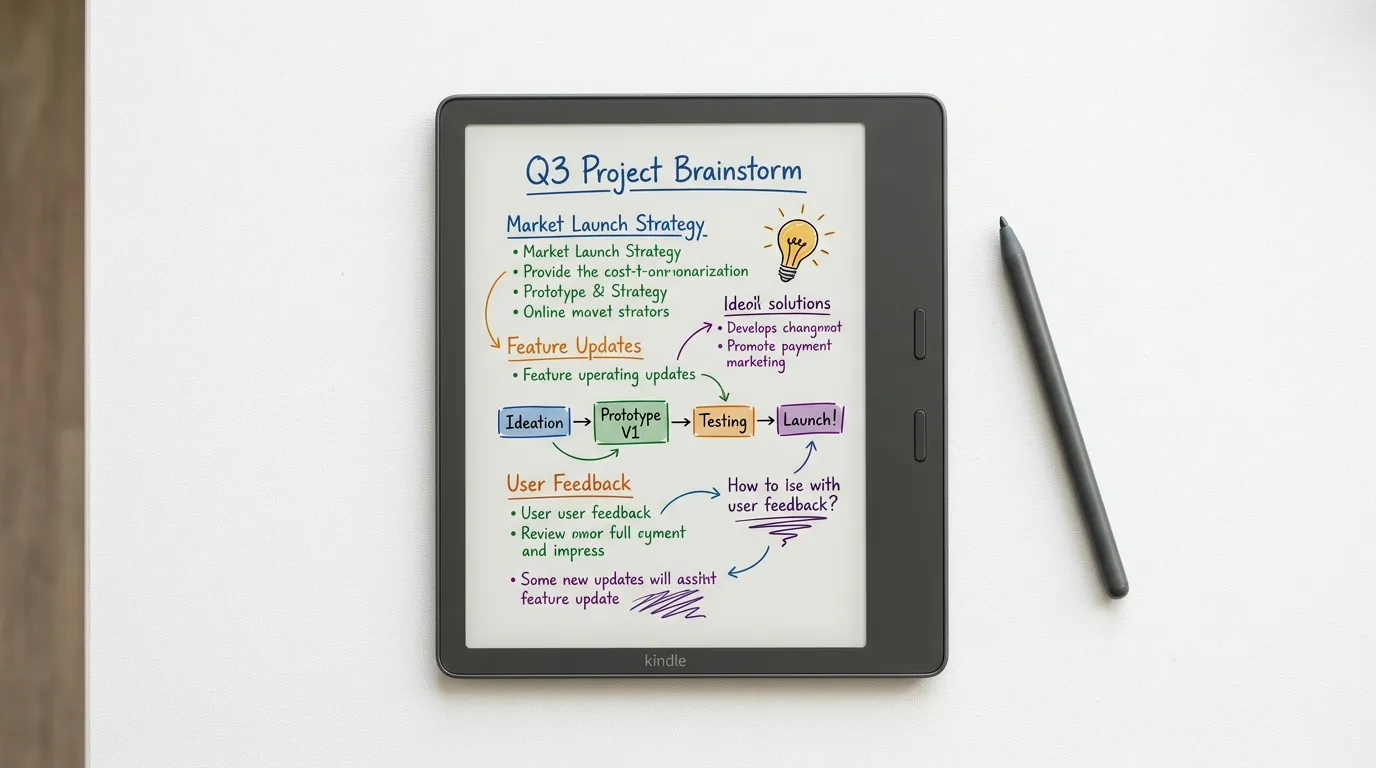 Q3 Project Brainstorm
Market Launch Strategy
• Market Launch Strategy
• Provide the
• Prototype & Strategy
• Online
Ideoil solutions
• Develops
• Promote payment
marketing
Feature Updates
• Feature uperating updates
Ideation
Prototype
V1
Testing
Launch!
User Feedback
• User user feedback
• Review full cyment
and impress
How to with
user feedback?
• Some new updates will
feature update
kindle